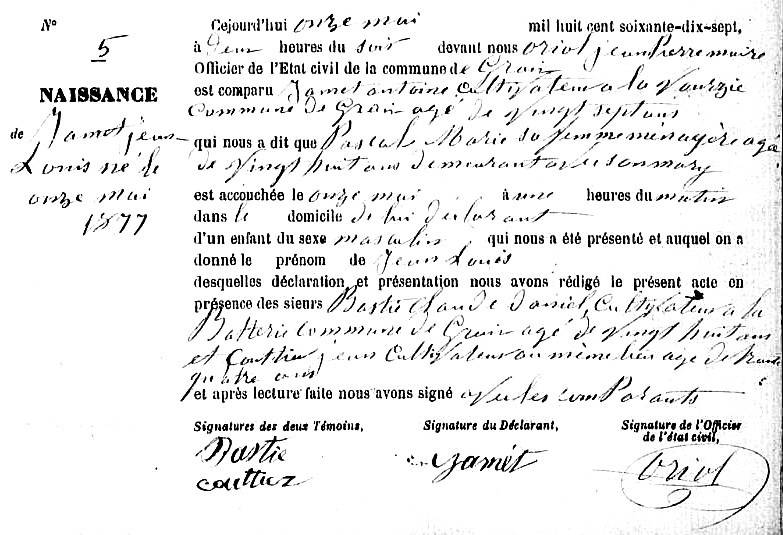 N°
5
NAISSANCE
de Jamet jean
Louis né le
onze mai
1877
Cejourd'hui onze mai mil huit cent soixante-dix-sept,
à deux heures du soir devant nous oriol jean Pierre maire
Officier de l'Etat civil de la commune de
est comparu Jamet antoine Cultivateur a la
Commune de agé de vingt sept ans
qui nous a dit que Pascal Marie sa femme ménagère agé
de vingt huit ans demeurant avec son mary
est accouchée le onze mai à une heures du matin
dans le domicile de lui déclarant
d'un enfant du sexe masculin qui nous a été présenté et auquel on a
donné le prénom de Jean Louis
desquelles déclaration et présentation nous avons rédigé le présent acte en
présence des sieurs Bastie Claude daniel, Cultivateur a la
Batterie Commune de agé de vingt huit ans
et Couttiez jean Cultivateur au même lieu age de trente
quatre ans
et après lecture faite nous avons signé avec les comParants
Signatures des deux Témoins,
Bastie
couttiez
Signature du Déclarant,
Jamét
Signature de l'Officier
de l'état civil,
oriol